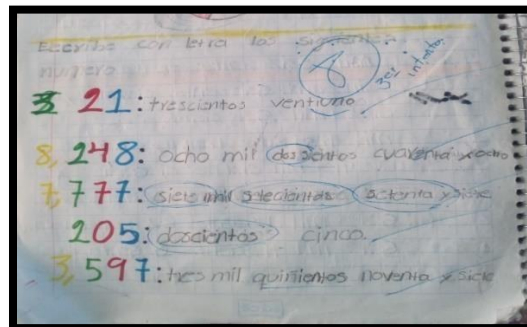 Escribe con letra los siguientes
número
8 3er intento
3 21: trescientos ventiuno
8,248: ocho mil dos sientos cuarenta y ocho
7,777: siete mil setecientos setenta y siete
205: doscientos cinco
3,597: tres mil quinientos noventa y siete